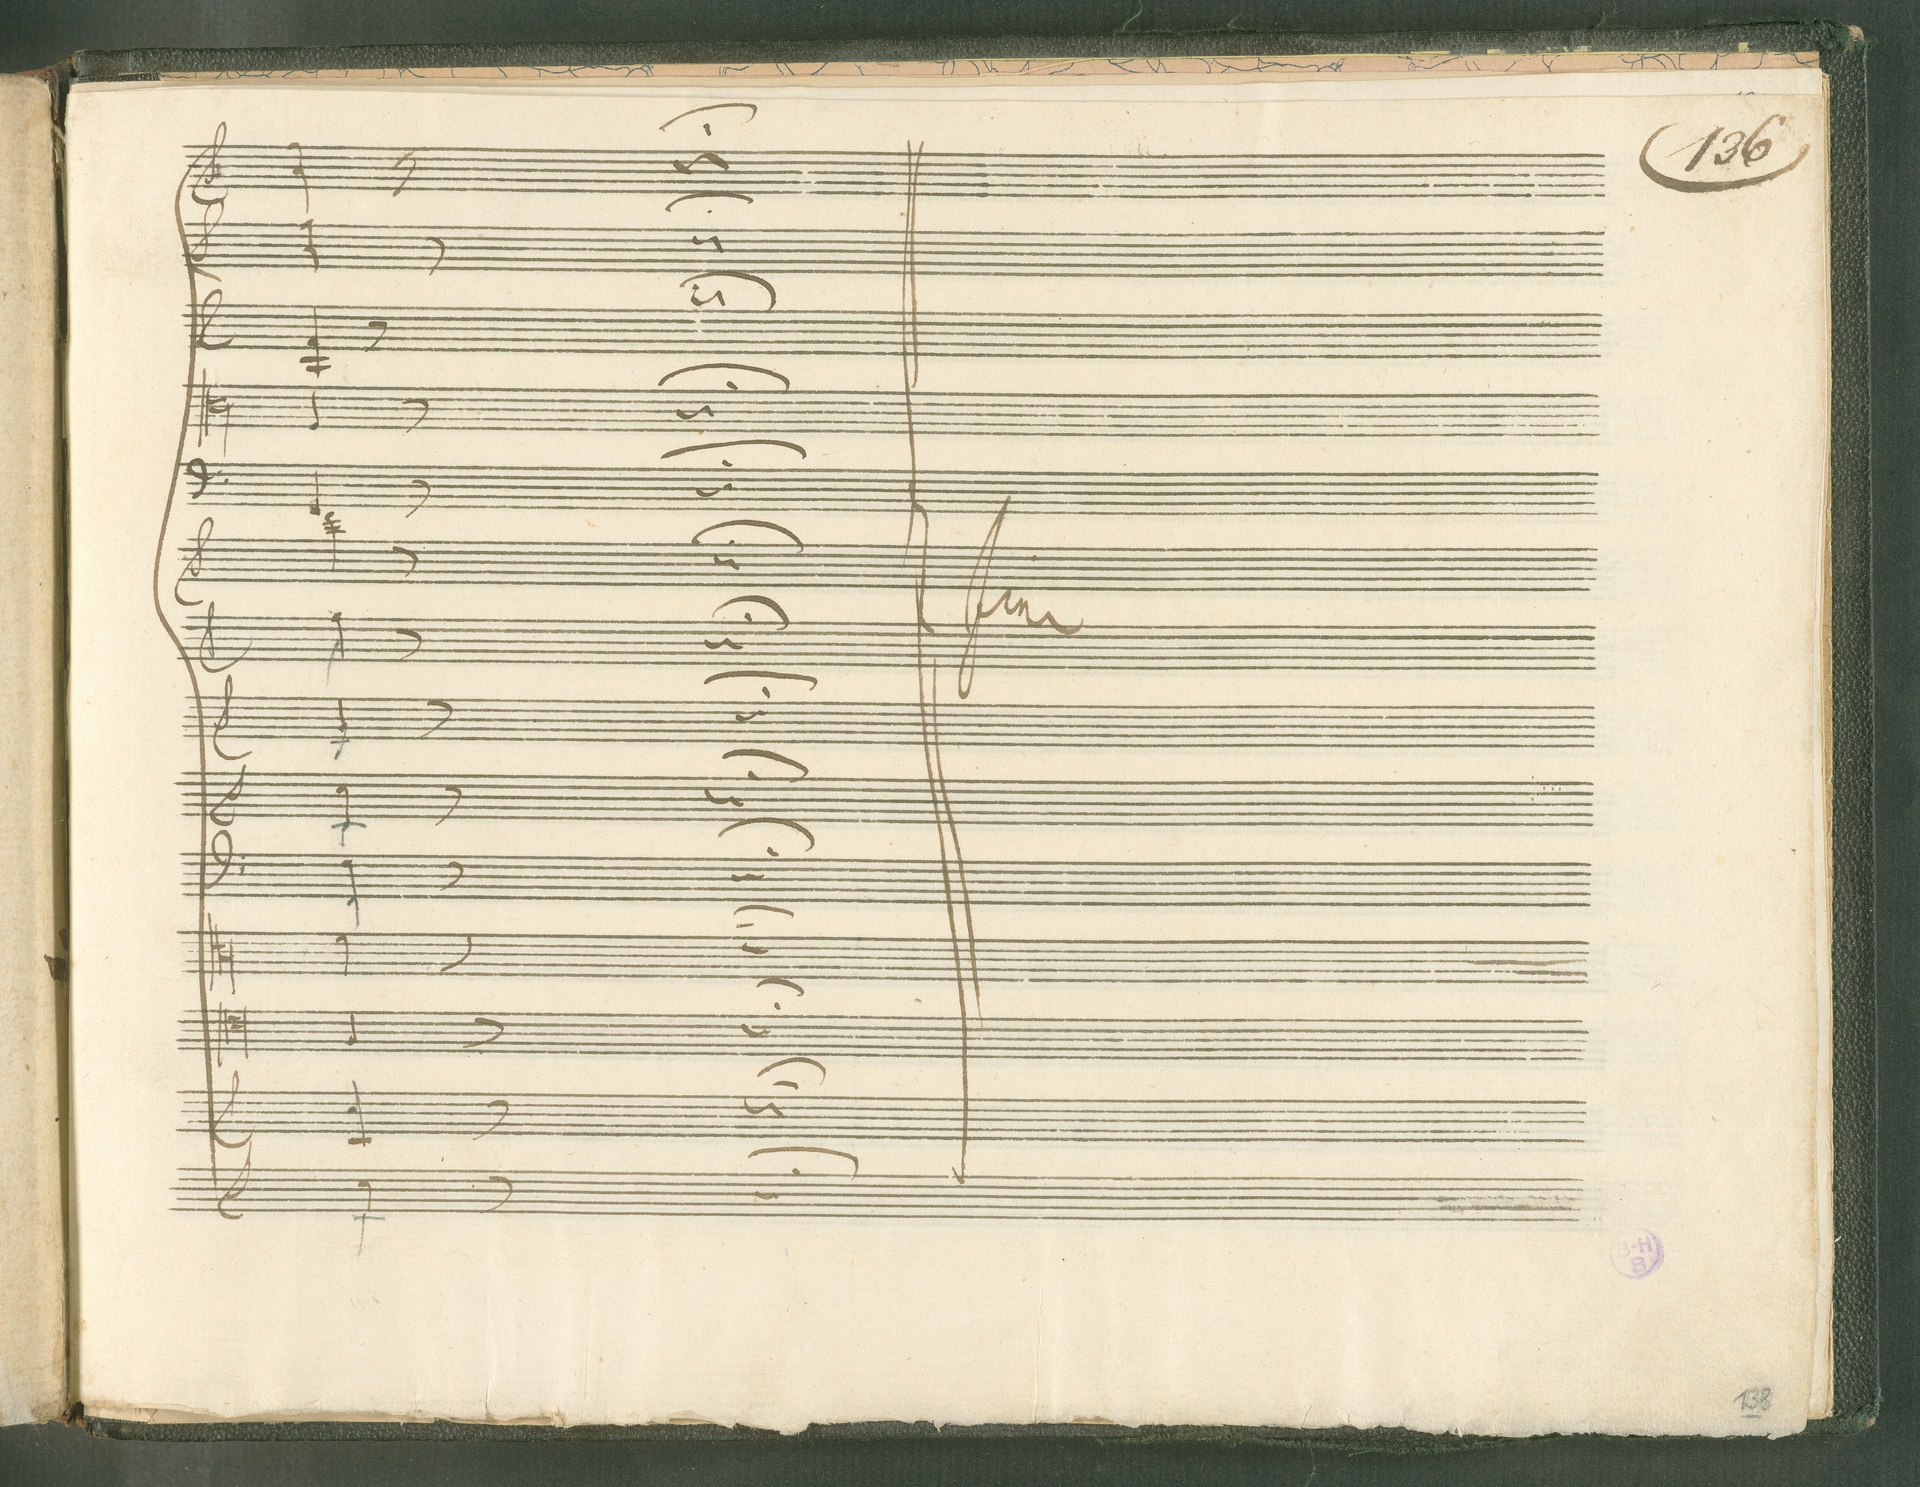 136
fine
B-H
B
138